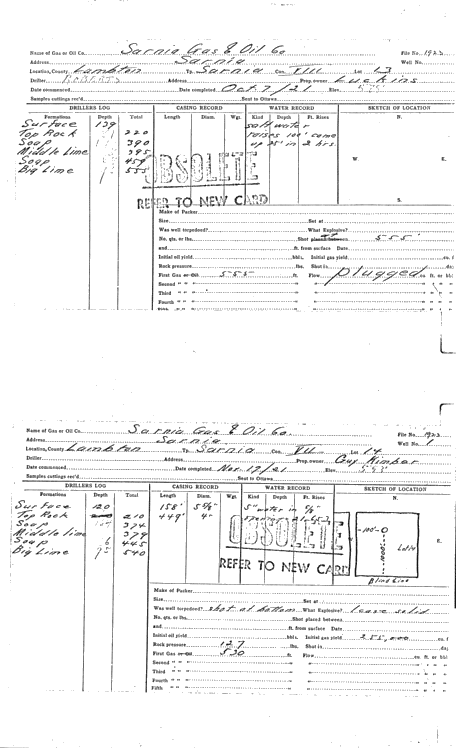 Name of Gas or Oil Co. Sarnia Gas & Oil Co File No 1923
Address Sarnia Well No.
Location, County Lambton Tp. Sarnia Con. VIII Lot 13
Driller ROBERTS Address Prop. owner Luckins
Date commenced Date completed Oct. 7/21 Elev. 595
Samples cuttings rec'd Sent to Ottawa
DRILLERS LOG CASING RECORD WATER RECORD SKETCH OF LOCATION
Formations Depth Total Length Diam. Wgt. Kind Depth Ft. Rises N.
Surface 139 salt water
Top Rock 220 raises 100' come
Soap 390 up 25' in 2 hrs.
Middle Lime 395
Soap 459
Big Lime 555
W. E.
OBSOLETE
REFER TO NEW CARD
S.
Make of Packer
Size Set at
Was well torpedoed? What Explosive?
No. qts. or lbs. Shot placed between 555'
and ft. from surface Date
Initial oil yield bbls. Initial gas yield cu. f
Rock pressure lbs. Shut in da;
First Gas or Oil 555 ft. Flow plugged cu ft. or bb
Second " "
Third " "
Fourth " "
Name of Gas or Oil Co. Sarnia Gas & Oil Co. File No. 1923
Address Sarnia Well No. 1
Location, County Lambton Tp. Sarnia Con. VII Lot 14
Driller Address Prop. owner Guy Kimbar
Date commenced Date completed Nov. 19/21 Elev. 593
Samples cuttings rec'd Sent to Ottawa
DRILLERS LOG CASING RECORD WATER RECORD SKETCH OF LOCATION
Formations Depth Total Length Diam. Wgt. Kind Depth Ft. Rises N.
Surface 120 158' 5 5/8" 5" water in
Top Rock 210 449' 4"
Soap 374
Middle lime 379
Soap 6 445
Big Lime 95 540
-100'-O
Lot 14
E.
OBSOLETE
REFER TO NEW CARD
Blind Line
Make of Packer
Size Set at
Was well torpedoed? shot at bottom What Explosive? leave solid
No. qts. or lbs. Shot placed between
and ft. from surface Date
Initial oil yield bbls. Initial gas yield 255,000 cu. f
Rock pressure 127 lbs. Shut in da;
First Gas or Oil 530 ft. Flow cu. ft. or bbl
Second " "
Third " "
Fourth " "
Fifth " "